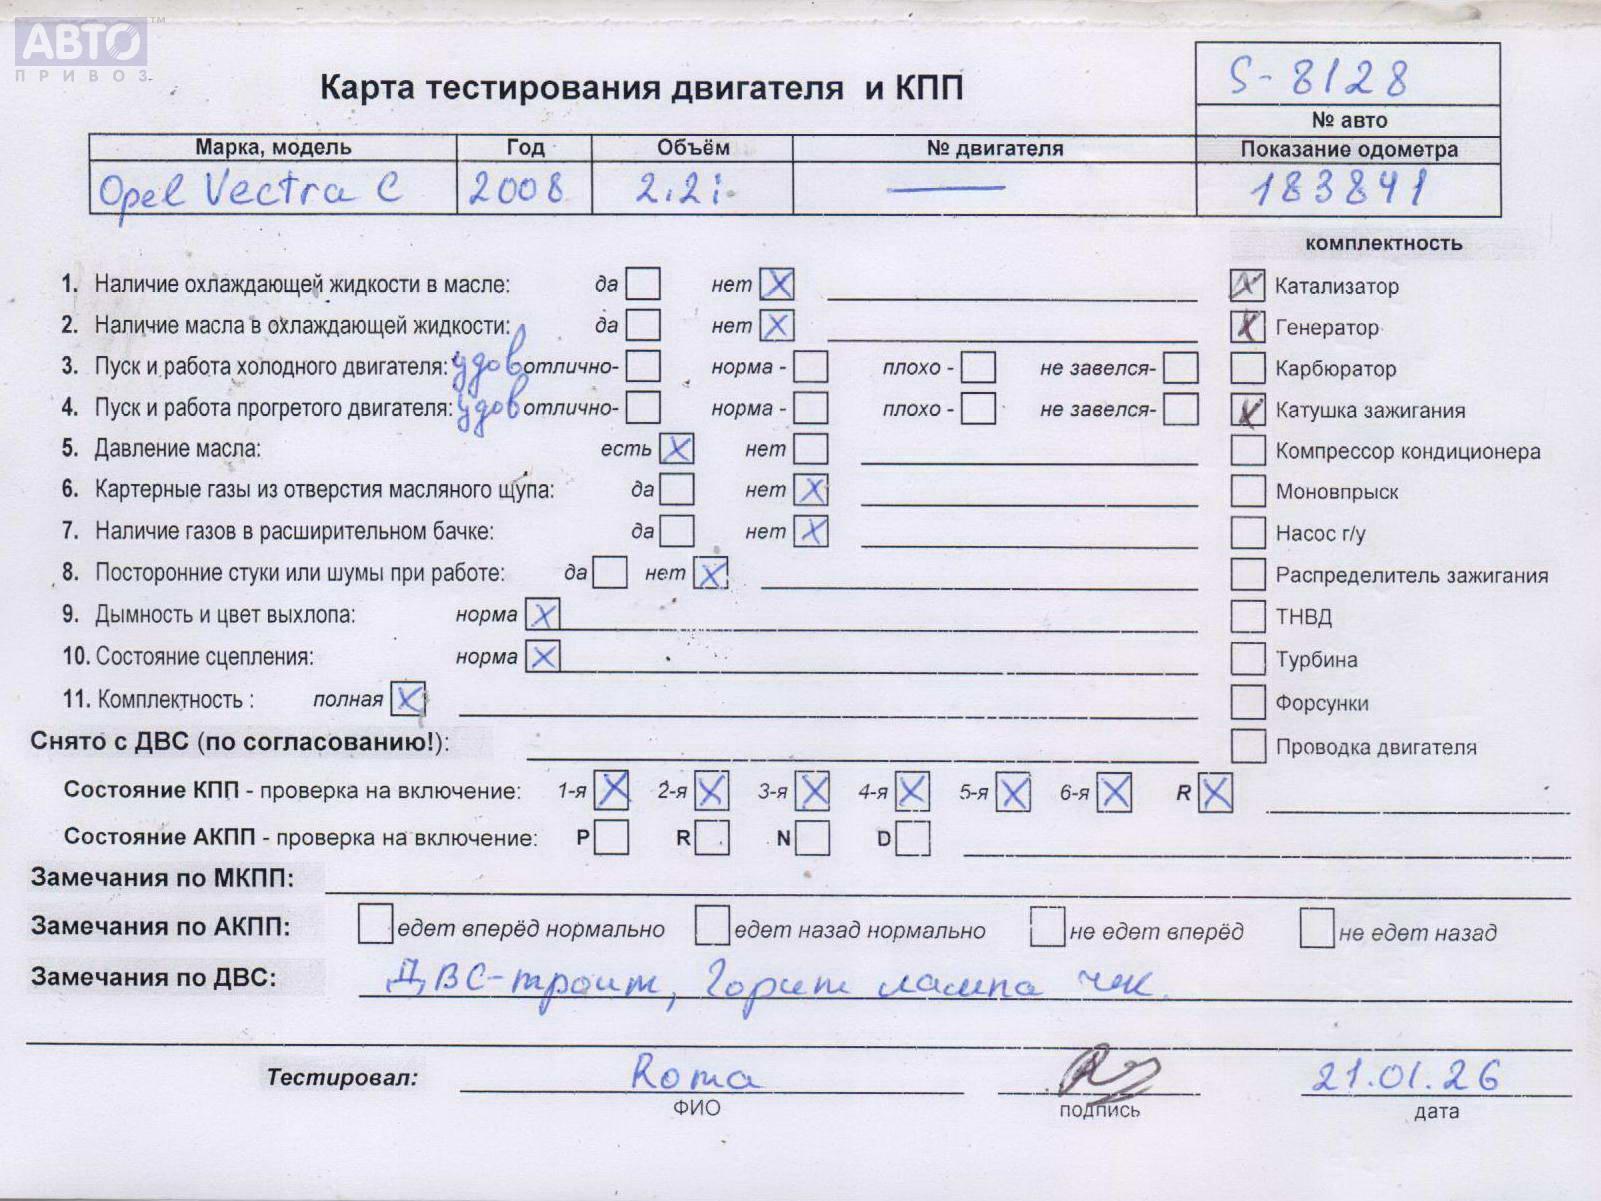 АВТО™
ПРИВОЗ
Карта тестирования двигателя и КПП
S-8128
№ авто
Марка, модель Год Объём № двигателя Показание одометра
Opel Vectra C 2008 2.2i — 183841
комплектность
1. Наличие охлаждающей жидкости в масле: да нет X Катализатор X
2. Наличие масла в охлаждающей жидкости: да нет X X Генератор
3. Пуск и работа холодного двигателя: удов отлично- норма - плохо - не завелся- Карбюратор
4. Пуск и работа прогретого двигателя: удов отлично- норма - плохо - не завелся- X Катушка зажигания
5. Давление масла: есть X нет Компрессор кондиционера
6. Картерные газы из отверстия масляного щупа: да нет X Моновпрыск
7. Наличие газов в расширительном бачке: да нет X Насос г/у
8. Посторонние стуки или шумы при работе: да нет X Распределитель зажигания
9. Дымность и цвет выхлопа: норма X ТНВД
10. Состояние сцепления: норма X Турбина
11. Комплектность : полная X Форсунки
Снято с ДВС (по согласованию!): Проводка двигателя
Состояние КПП - проверка на включение: 1-я X 2-я X 3-я X 4-я X 5-я X 6-я X R X
Состояние АКПП - проверка на включение: P R N D
Замечания по МКПП:
Замечания по АКПП: едет вперёд нормально едет назад нормально не едет вперёд не едет назад
Замечания по ДВС: ДВС-троит, Горит лампа чек.
Тестировал: Roma 21.01.26
ФИО подпись дата